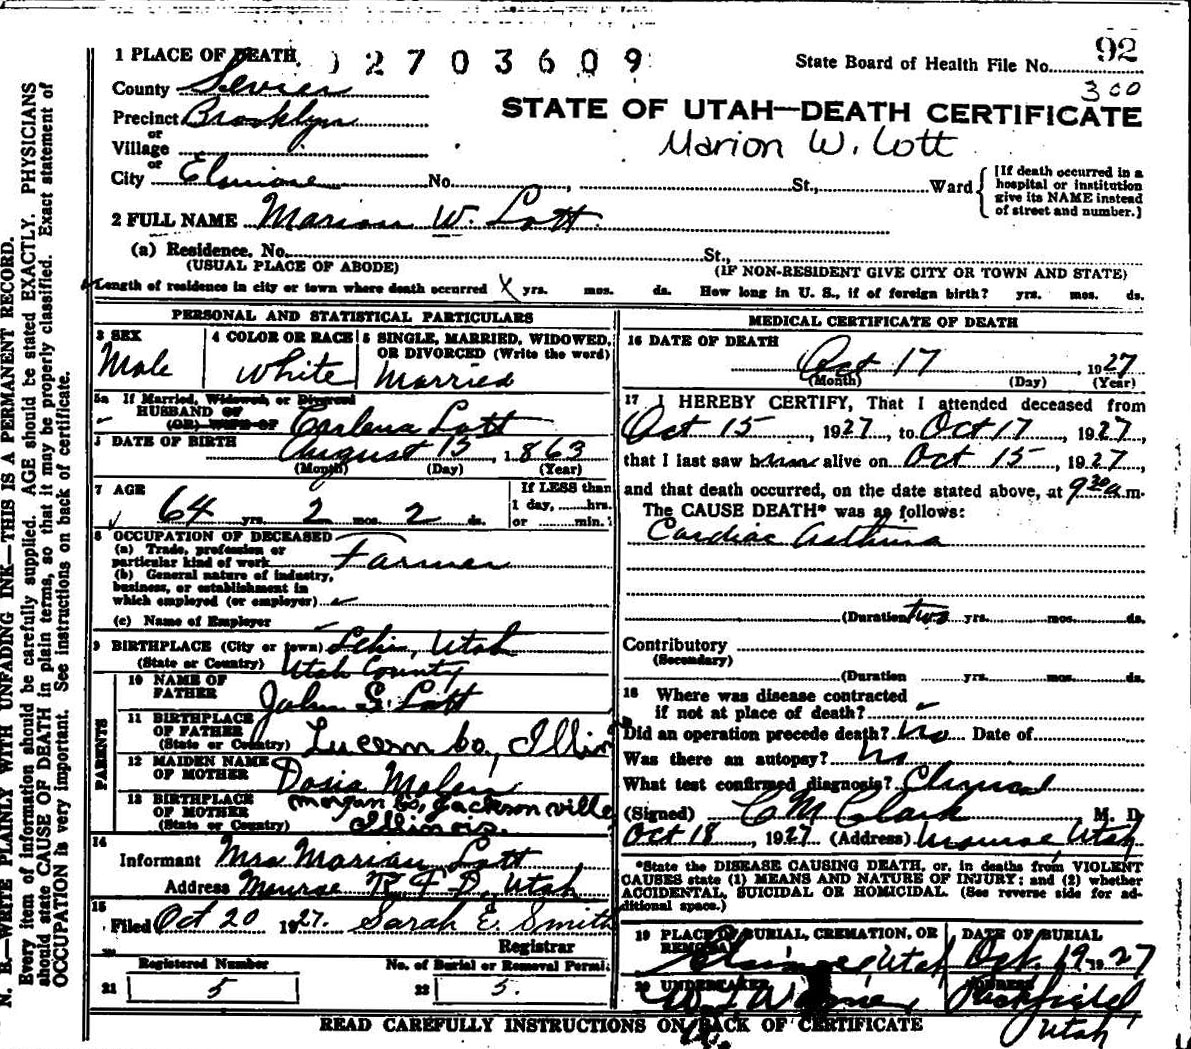 92
1 PLACE OF DEATH 02703609 State Board of Health File No.
300
County Sevier
STATE OF UTAH—DEATH CERTIFICATE
Precinct Brooklyn
or
Village
Marion W. Lott
or
City Elsinore No. , St., Ward
[If death occurred in a
hospital or institution
give its NAME instead
of street and number.]
2 FULL NAME Marion W. Lott.
(a) Residence. No. St.,
(USUAL PLACE OF ABODE) (IF NON-RESIDENT GIVE CITY OR TOWN AND STATE)
Length of residence in city or town where death occurred X yrs. mos. ds. How long in U. S., if of foreign birth? yrs. mos. ds.
PERSONAL AND STATISTICAL PARTICULARS
3 SEX 4 COLOR OR RACE 5 SINGLE, MARRIED, WIDOWED, OR DIVORCED (Write the word)
Male White Married
5a If Married, Widowed, or Divorced
HUSBAND OF
(OR) WIFE OF Lott
DATE OF BIRTH August 15, 1863
(Month) (Day) (Year)
7 AGE If LESS than
64 yrs. 2 mos. 2 ds. 1 day, hrs.
or min.
8 OCCUPATION OF DECEASED
(a) Trade, profession or
particular kind of work Farmer
(b) General nature of industry,
business, or establishment in
which employed (or employer)
(c) Name of Employer
9 BIRTHPLACE (City or town) Lehi, Utah
(State or Country) Utah County
PARENTS
10 NAME OF
FATHER John S. Lott
11 BIRTHPLACE
OF FATHER
(State or Country) Illin
12 MAIDEN NAME
OF MOTHER Docia
13 BIRTHPLACE
OF MOTHER
(State or Country) Morgan Co, Jacksonville
Illinois.
14
Informant Mrs Marian Lott
Address Monroe R F D, Utah
15
Filed Oct 20 1927. Sarah E. Smith
Registrar
Registered Number No. of Burial or Removal Permit
21 5 22 5.
MEDICAL CERTIFICATE OF DEATH
16 DATE OF DEATH
Oct 17, 1927
(Month) (Day) (Year)
17 I HEREBY CERTIFY, That I attended deceased from
Oct 15, 1927, to Oct 17, 1927,
that I last saw him alive on Oct 15, 1927,
and that death occurred, on the date stated above, at 9 30 a.m.
The CAUSE DEATH* was as follows:
Cardiac Asthma
(Duration two yrs. mos. ds.
Contributory
(Secondary)
(Duration yrs. mos. ds.
18 Where was disease contracted
if not at place of death?
Did an operation precede death? No Date of
Was there an autopsy? No
What test confirmed diagnosis? Clinical
(Signed) C M Clark M. D.
Oct 18, 1927 (Address) Monroe, Utah
*State the DISEASE CAUSING DEATH, or, in deaths from VIOLENT
CAUSES state (1) MEANS AND NATURE OF INJURY; and (2) whether
ACCIDENTAL, SUICIDAL OR HOMICIDAL. (See reverse side for ad-
ditional space.)
19 PLACE OF BURIAL, CREMATION, OR REMOVAL DATE OF BURIAL
Elsinore Utah Oct. 19 1927
20 UNDERTAKER ADDRESS
Richfield
Utah
READ CAREFULLY INSTRUCTIONS ON BACK OF CERTIFICATE
N. B.—WRITE PLAINLY WITH UNFADING INK—THIS IS A PERMANENT RECORD.
Every item of information should be carefully supplied. AGE should be stated EXACTLY. PHYSICIANS
should state CAUSE OF DEATH in plain terms, so that it may be properly classified. Exact statement of
OCCUPATION is very important. See instructions on back of certificate.